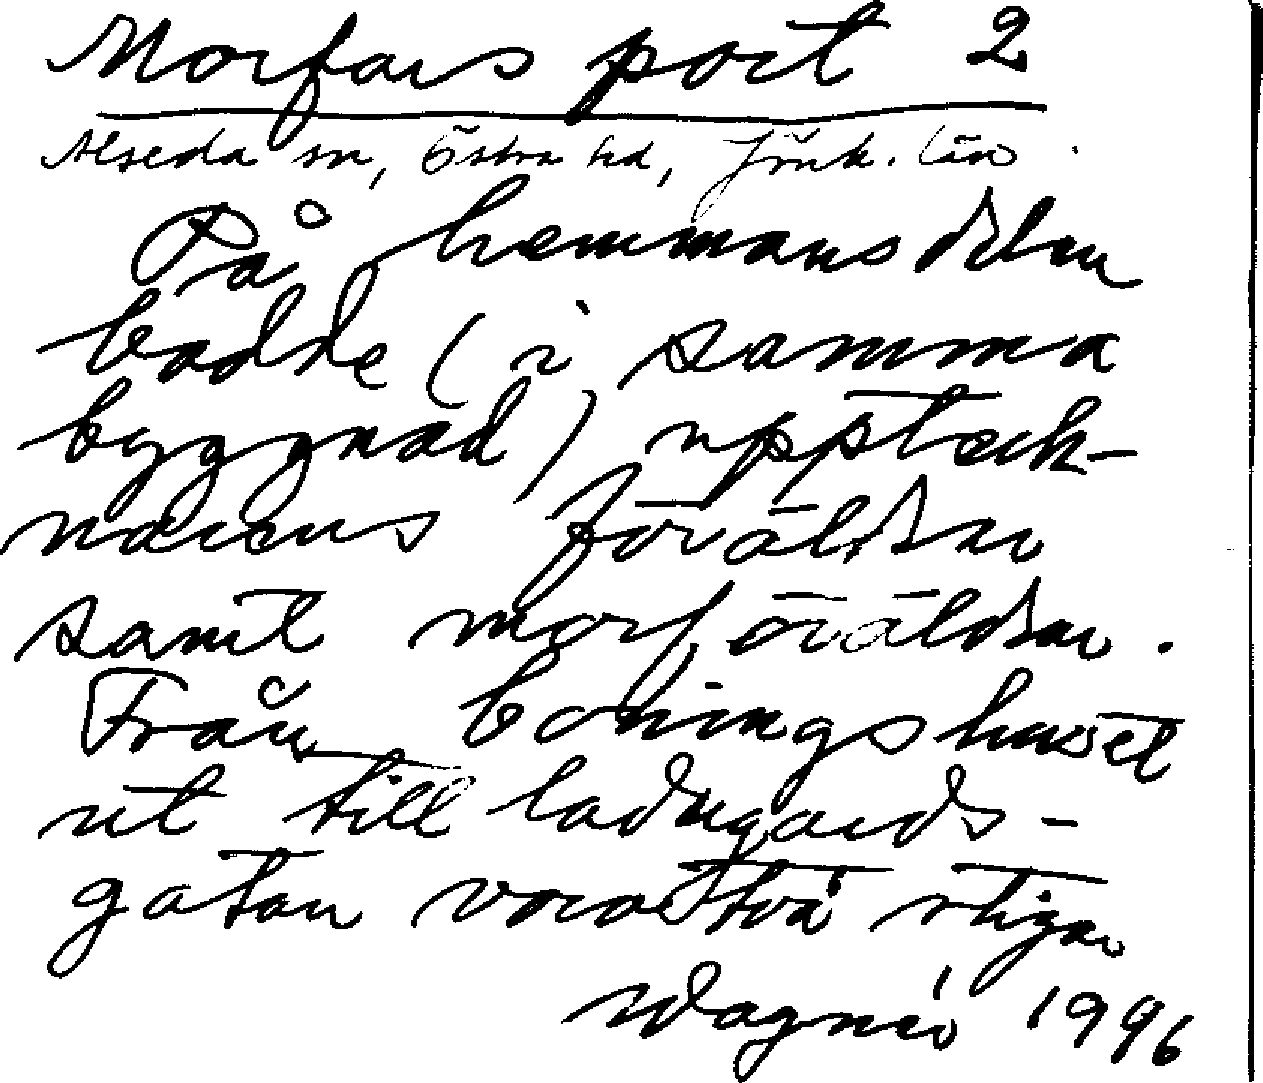 Morfars port 2
Alseda sn, Östra hd, Jönk. län.
På hemmansdelen
bodde (i samma
byggnad) uppteck-
narens föräldrar
samt morföräldrar.
Från boningshuset
ut till ladugårds-
gatan voro två stigar
Wagnér 1996